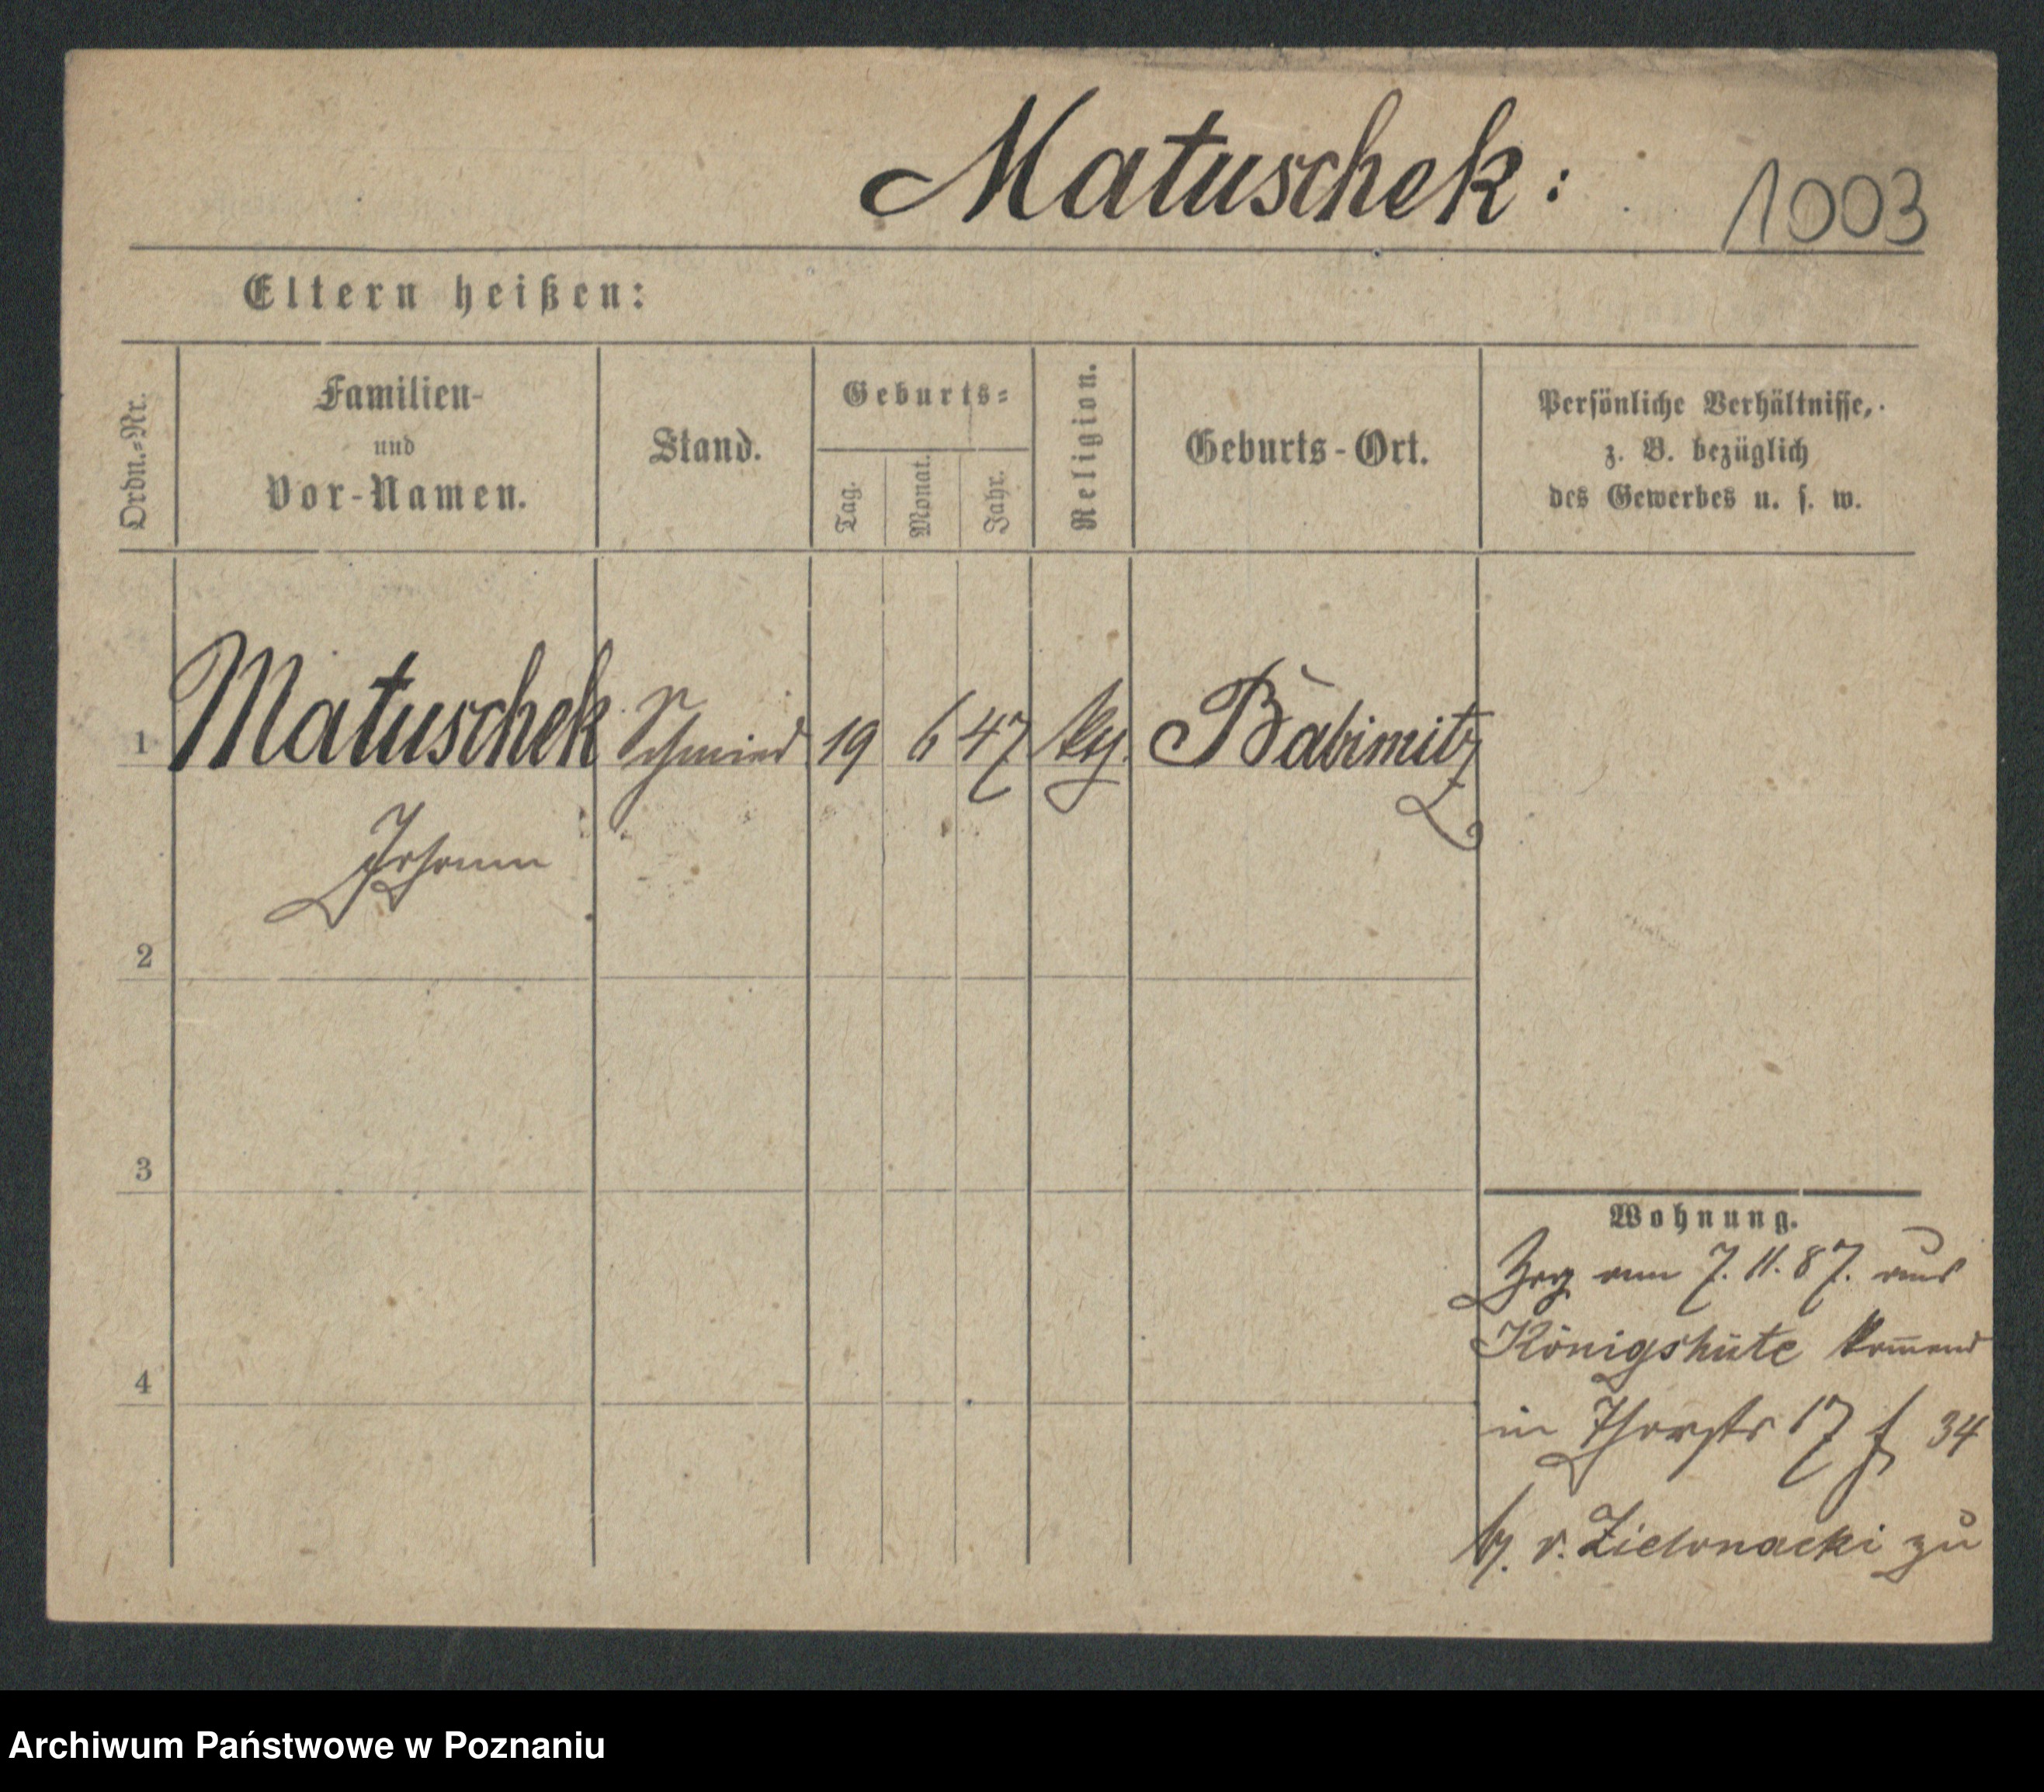 Matuschek: 1003
Eltern heißen:
Ordn.=Nr.
Familien-
und
Vor-Namen.
Stand.
Geburts=
Tag.
Monat.
Jahr.
Religion.
Geburts-Ort.
Persönliche Verhältnisse,
z. B. bezüglich
des Gewerbes u. s. w.
1 Matuschek Schmied 19 6 47 Babimitz
Johann
2
3
4
Wohnung.
Zog am 7. 11. 87. aus
Königshüte kom̄end
in Thorstr 17 34
b. v. Zielonacki zu
Archiwum Państwowe w Poznaniu